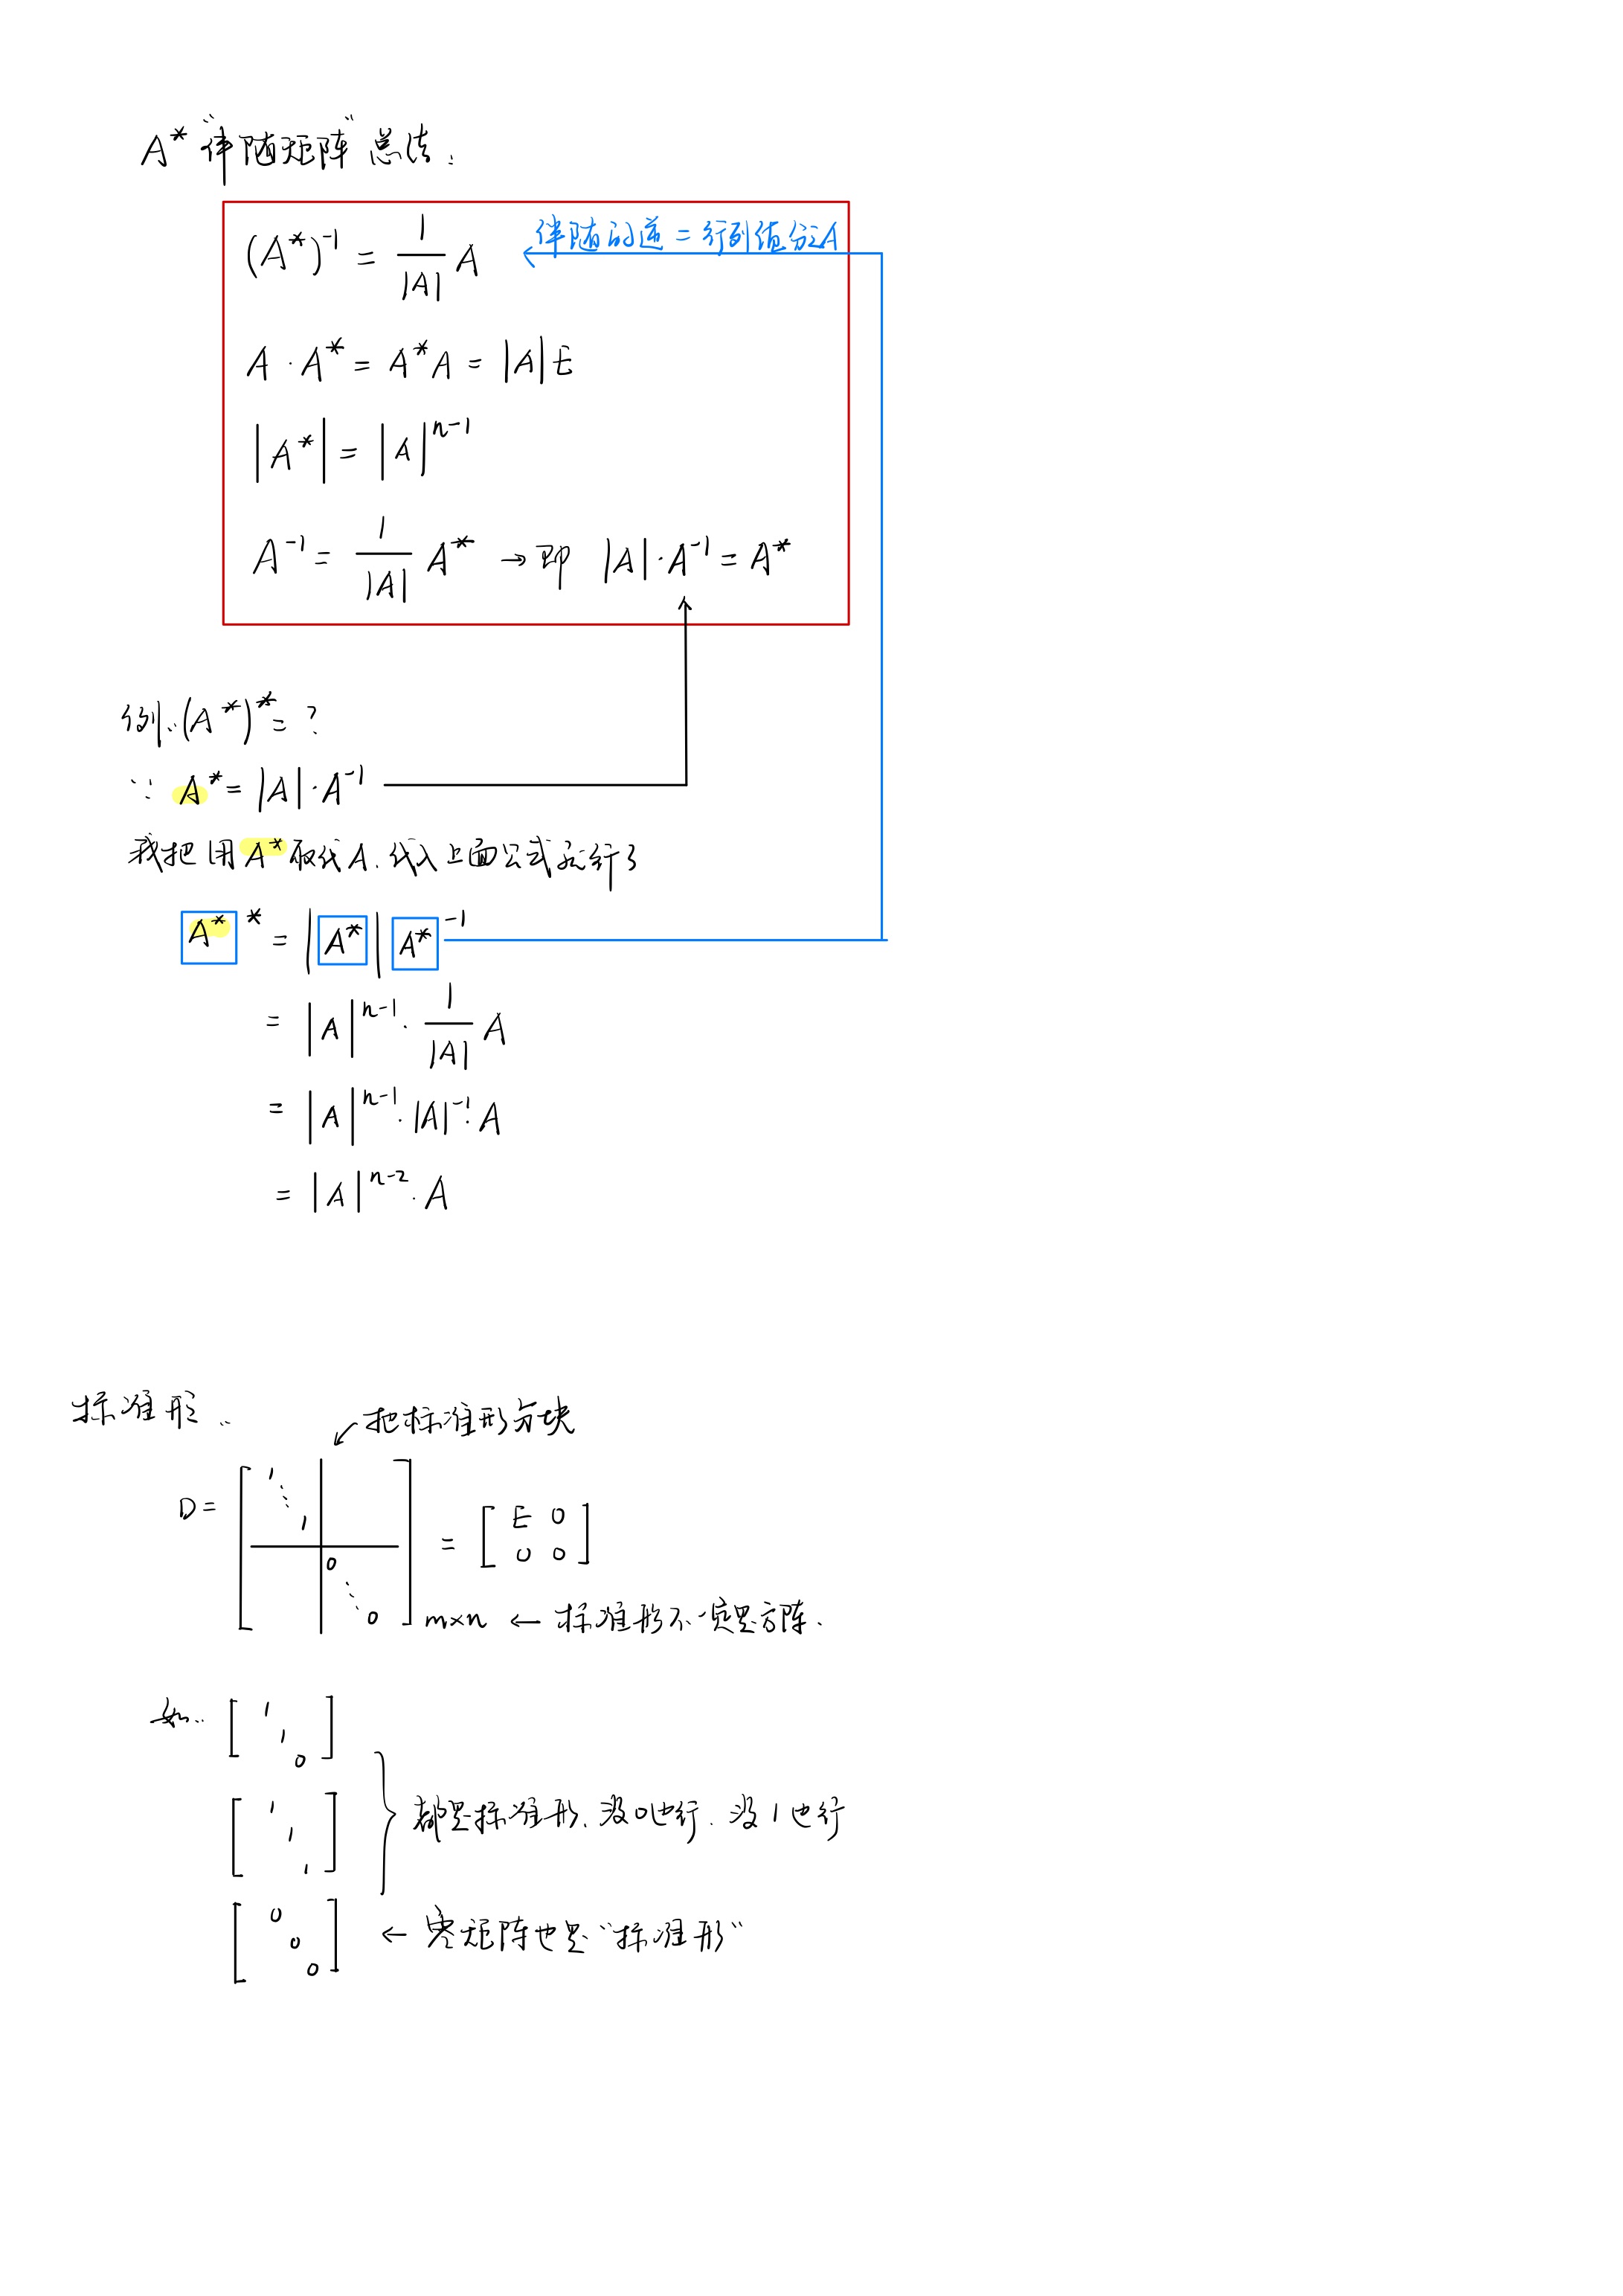 A* “伴随矩阵” 总结:
(A*)⁻¹ = 1/|A| A ← 伴随的逆 = 行列值分之A
A · A* = A*A = |A|E
|A*| = |A|ⁿ⁻¹
A⁻¹ = 1/|A| A* → 即 |A|·A⁻¹ = A*
例: (A*)* = ?
∵ A* = |A|·A⁻¹
我把用A*取代A, 代入上面公式就行了
A* * = |A*| A* ⁻¹
= |A|ⁿ⁻¹ · 1/|A| A
= |A|ⁿ⁻¹ · |A|⁻¹ · A
= |A|ⁿ⁻² · A
标准形:
↙ 把标准形分块
D = [1 ⋱ 1 0 ⋱ 0] m×n = [E 0
0 0]
← 标准形不一定是方阵.
如: [1 1 0]
[1 1 1]
} 都是标准形, 没0也行. 没1也行
[0 0 0] ← 零矩阵也是“标准形”